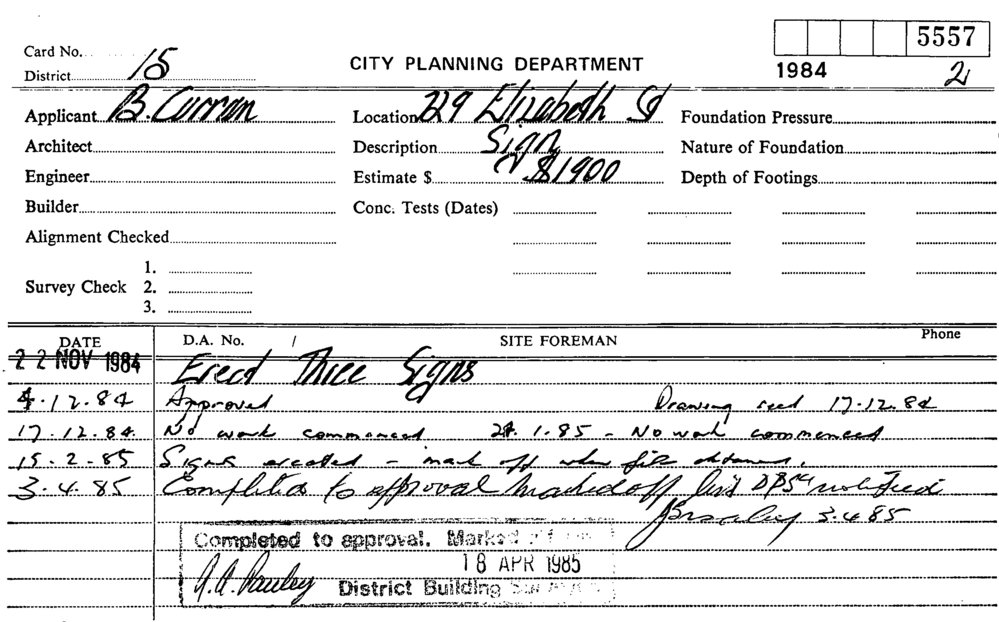 5557
Card No.
District 15
CITY PLANNING DEPARTMENT
1984 2
Applicant B. Curran Location 229 Elizabeth St Foundation Pressure
Architect Description Sign Nature of Foundation
Engineer Estimate $ $1900 Depth of Footings
Builder Conc. Tests (Dates)
Alignment Checked
1.
Survey Check 2.
3.
DATE D.A. No. / SITE FOREMAN Phone
22 NOV 1984 Erect Three Signs
4.12.84 Approved Drawing recd 17.12.84
17.12.84. No work commenced 21.1.85 - No work commenced
15.2.85 Signs erected - mark off when file obtained.
3.4.85 Completed to approval marked off notified
3.4.85
Completed to approval. Marked off
18 APR 1985
A.A. Pauley District Building